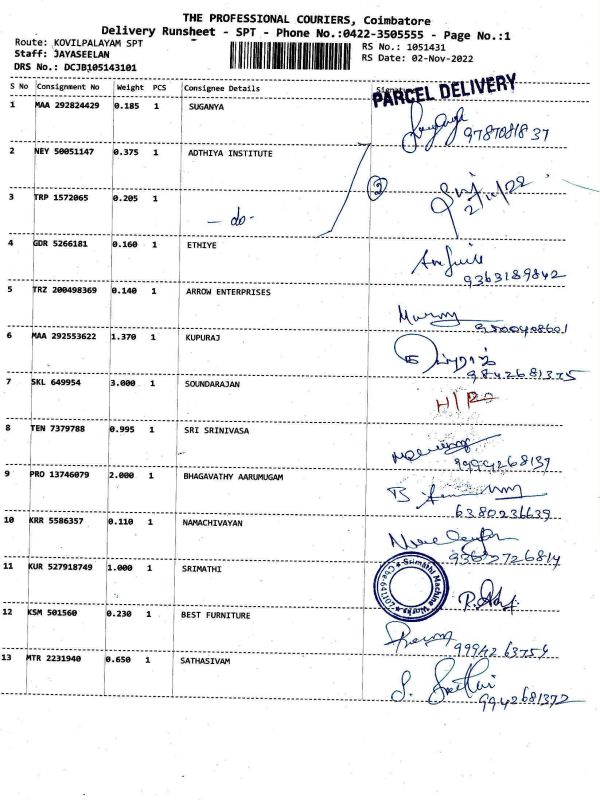 THE PROFESSIONAL COURIERS, Coimbatore
Delivery Runsheet - SPT - Phone No.:0422-3505555 - Page No.:1
Route: KOVILPALAYAM SPT
Staff: JAYASEELAN
DRS No.: DCJB105143101
RS No.: 1051431
RS Date: 02-Nov-2022
S No Consignment No Weight PCS Consignee Details Signature
PARCEL DELIVERY
1 MAA 292824429 0.185 1 SUGANYA
9787081837
2 NEY 50051147 0.375 1 ADTHIYA INSTITUTE
2
2/11/22
3 TRP 1572065 0.205 1 - do -
4 GDR 5266181 0.160 1 ETHIYE
9363189842
5 TRZ 200498369 0.140 1 ARROW ENTERPRISES
6 MAA 292553622 1.370 1 KUPURAJ
9842681375
7 SKL 649954 3.000 1 SOUNDARAJAN
8 TEN 7379788 0.995 1 SRI SRINIVASA
9 PRO 13746079 2.000 1 BHAGAVATHY AARUMUGAM
6380236639
10 KRR 5586357 0.110 1 NAMACHIVAYAN
11 KUR 527918749 1.000 1 SRIMATHI
Srimathi Machine Works
12 KSM 501560 0.230 1 BEST FURNITURE
13 MTR 2231940 0.650 1 SATHASIVAM
9942681372